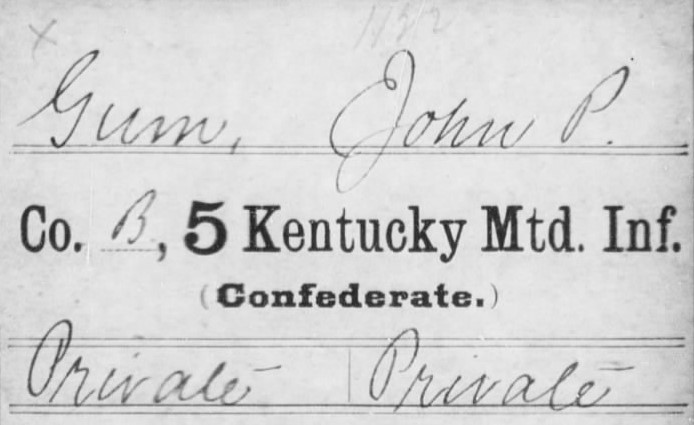 x 1132
Gum, John P.
Co. B, 5 Kentucky Mtd. Inf.
(Confederate.)
Private | Private